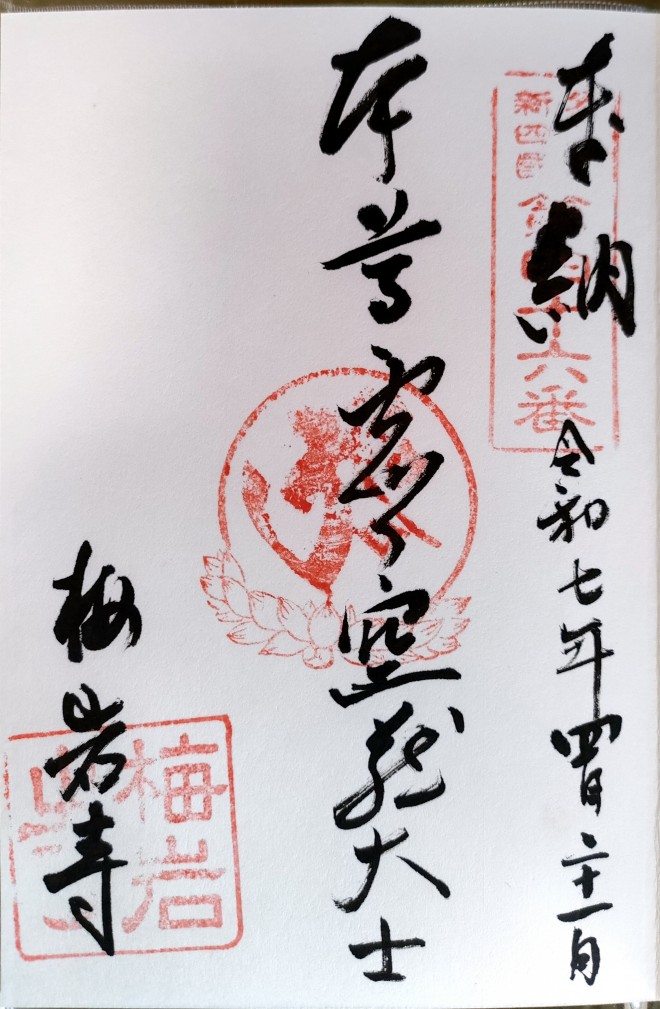 奉納
令和七年四月二十一日
新四国
第四十六番
本尊虚空蔵大士
梅岩寺
梅岩